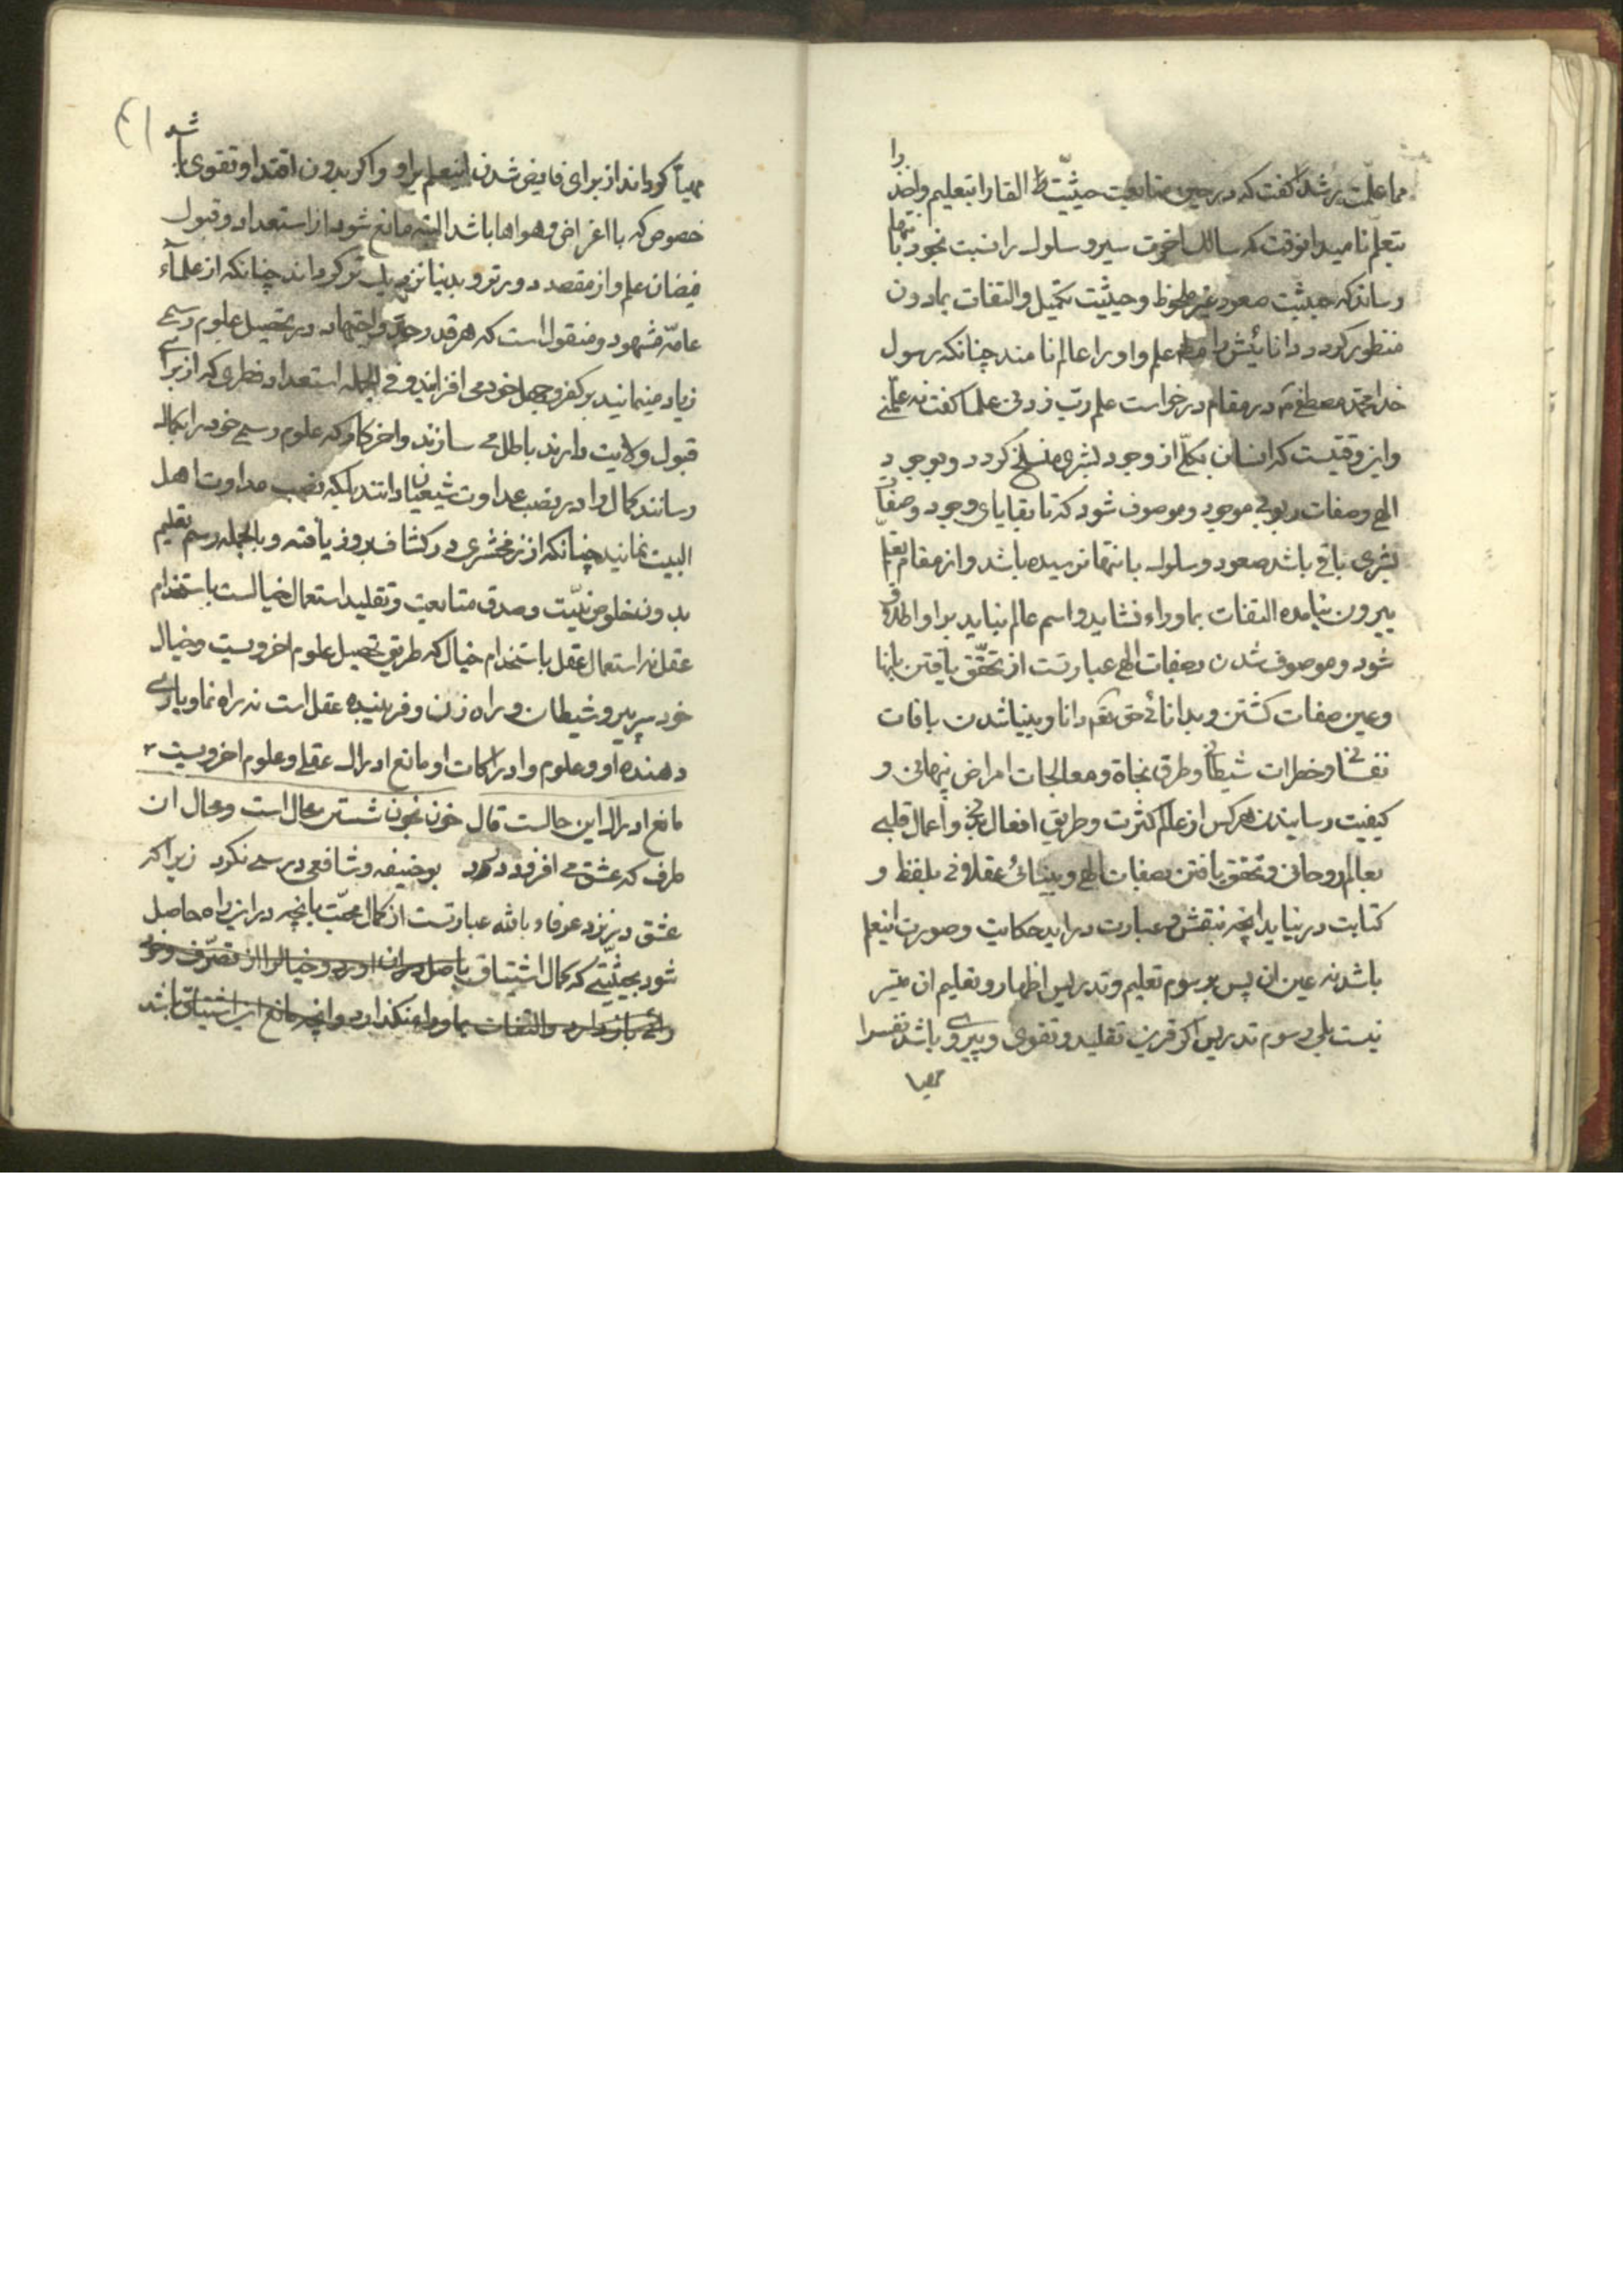 مما علّمت رشداً گفت که در حین متابعت حیثیّت القا را بتعلیم واخذ را
بتعلّم نامید انوقت که سالک اخوت سیر و سلوک را نسبت بخود بانتها
رساند که حیثیت صعود غیر ملحوظ و حیثیت تکمیل والتفات بمادون
منظور کردد دانائیش را علم و او را عالم نامند چنانکه رسول
خدا محمّد مصطفی در مقام درخواست علم ربّ زدنی علما گفت نه علّمنی
واین وقتیست که انسان بکلّی از وجود بشری منسلخ کردد و بوجود
الهی وصفات ربوبی موجود و موصوف شود که تا بقایای وجود وصفات
بشری باقی باشد صعود و سلوک بانتها نرسیده باشد و از مقام تعلم
بیرون نیامده التفات بماوراء نشاید واسم عالم نیاید بر او اطلاق
شود و موصوف شدن بصفات الهی عبارتست از تحقّق یافتن بانها
وعین صفات کشتن و بدانائی حق تعم دانا وبینا شدن بافات
نفسانی وخطرات شیطانی وطرق نجاة ومعالجات امراض پنهانی و
کیفیت رسانیدن هر کس از عالم کثرت وطریق افعال بدنی واعمال قلبی
بعالم روحانی و تحقق یافتن بصفات الهی وبینائی عقلانی بلفظ و
کتابت درنیاید انچه بنقش و عبارت دراید حکایت وصورت اینعلم
باشد نه عین ان پس برسوم تعلیم وتدریس اظهار و تعلیم ان میسر
نیست بلی رسوم تدریس اکر قرین تقلید و تقوی و پیروی باشد نفس را
مهیا
۴۱
مهیّا کرداند از برای فایض شدن اینعلم براو و اکر بدون اقتدا و تقوی باشد
خصوص که با اغراض وهواها باشد البته مانع شود از استعداد و قبول
فیضان علم و از مقصد دورتر و بدنیا نزدیک تر کرداند چنانکه از علمآء
عامّه مشهود و منقول است که هر قدر جدّ واجتهاد در تحصیل علوم رسمی
زیاد مینمایند بر کفر و جهل خود می افزایند و فی الجمله استعداد فطری که از برای
قبول ولایت دارند باطل می سازند واخر کار که علوم رسمی خود را بکمال
رسانند کمال را در نصب عداوت شیعیان دانند بلکه نصب عداوت اهل
البیت نمایند چنانکه از زمخشری در کشاف بروز یافته و بالجمله رسم تعلیم
بدون خلوص نیّت و صدق متابعت وتقلید استعمال خیالست باستخدام
عقل نه استعمال عقل باستخدام خیال که طریق تحصیل علوم اخرویست و خیال
خود سر پیرو شیطان و راه زن و فریبنده عقل است نه راه نما و یاری
دهنده او و علوم و ادراکات او مانع ادراک عقلی و علوم اخرویست
مانع ادراک این حالست قال خون بخون شستن محال است و محال ان
طرف که عشق می افزود درد بوحنیفه و شافعی درسی نکرد زیرا که
عشق در نزد عرفاء بالله عبارتست از کمال محبّت بانچه در این راه حاصل
شود بحیثیّتی که کمال اشتیاق باصل در ان اورد و خیال را از تصرّف وخود
رائی باز دارد والتفات بماوراء نکذارد وانچه مانع این اشتیاق باشد